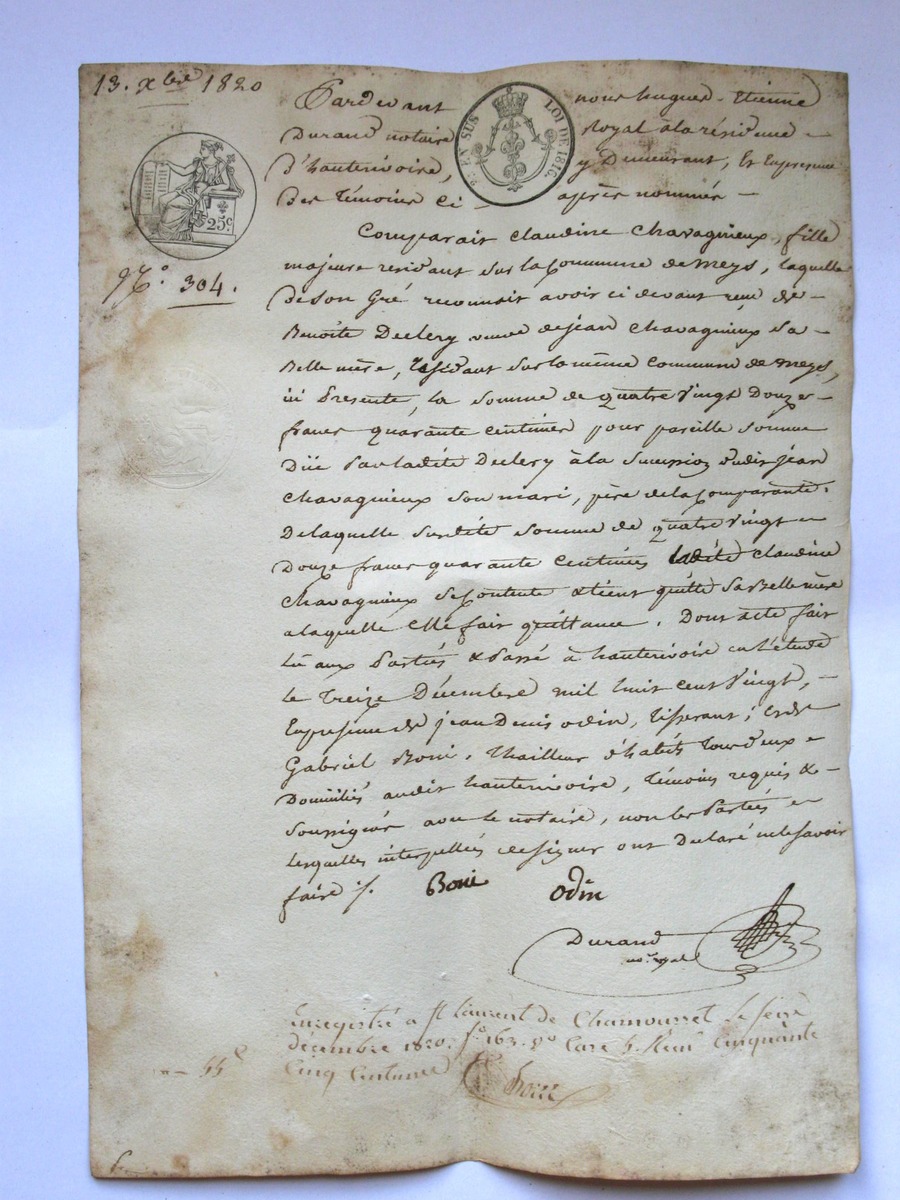 13. Xbre 1820
Pardevant nous hugues-Etienne
Durand notaire Royal à la résidence
d'hauterivoire, y Demeurant, Et En presence
Des témoins ci après nommés
EN SUS LOI DE 1816.
25c
No. 304.
Comparait claudine chavagnieux, fille
majeure residant sur la commune de meys, laquelle
de son Gré reconnait avoir ci devant reçu de
Benoite Declery veuve de jean chavagnieux sa
Belle mère, résidant sur la même commune de meys,
ici présente, la somme de quatre vingt Douze
francs quarante centimes pour pareille somme
Düe par ladite Declery à la succession dudit jean
chavagnieux son mari, père de la comparante.
De laquelle susdite somme de quatre vingt
Douze francs quarante centimes ladite claudine
chavagnieux se contente & tient quitte sa Belle mère
a laquelle Elle fait quittance. Dont acte fait
lu aux parties & passé à hauterivoire en l'étude
le treize Décembre mil huit cent vingt,
En presence de jean Denis odin, tisserant, Et de
Gabriel Boni, thailleur d'habits tous deux
Domiciliés audit hauterivoire, témoins requis &
soussignés avec le notaire, non les parties
lesquelles interpellées de signer ont Déclaré ne le savoir
faire ./. Boni odin
Durand
no. royal
Enregistré a St Laurent de Chamousset le seize
décembre 1820. fo. 163. Vo Case 5. Reçu Cinquante
Cinq Centimes
55c